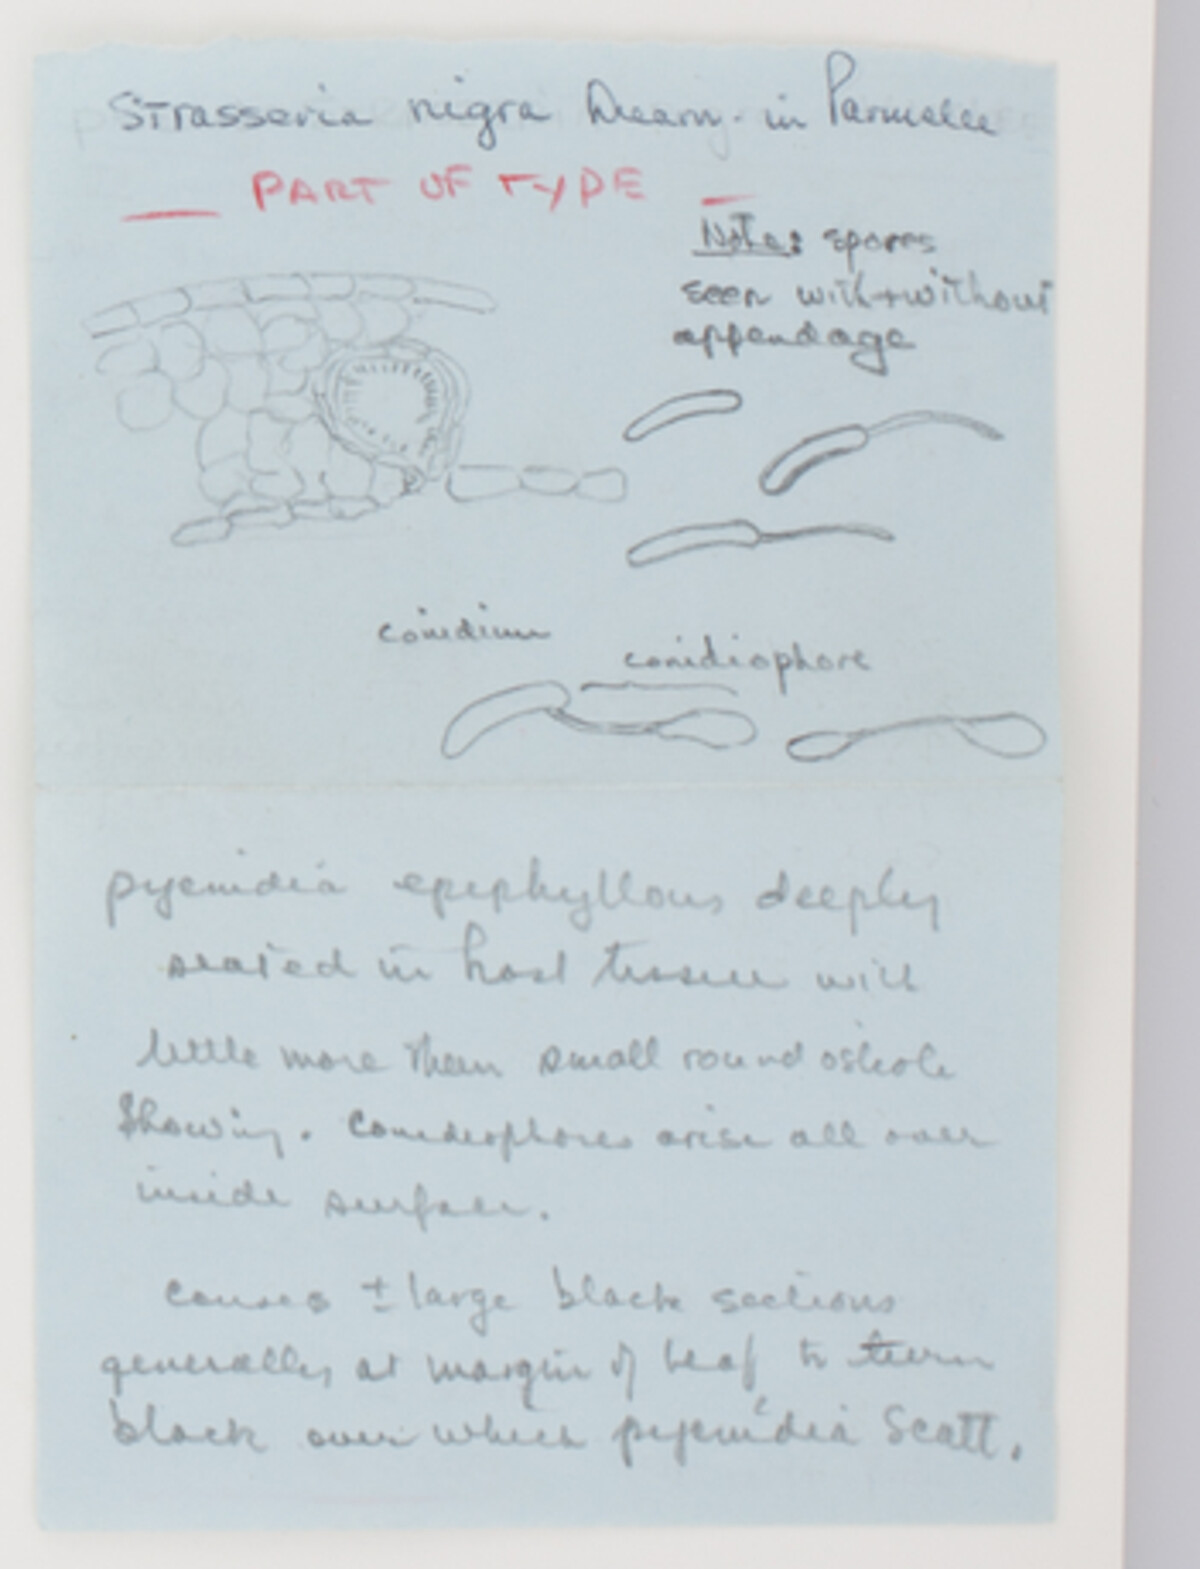 Strasseria nigra Dearn. in Parmelee
PART OF TYPE
Note: spores
seen with + without
appendage
conidium
conidiophore
pycnidia epiphyllous deeply
seated in host tissue with
little more than small round ostiole
showing. Conidiophores arise all over
inside surface.
causes ± large black sections
generally at margin of leaf to turn
black over which pycnidia scatt.